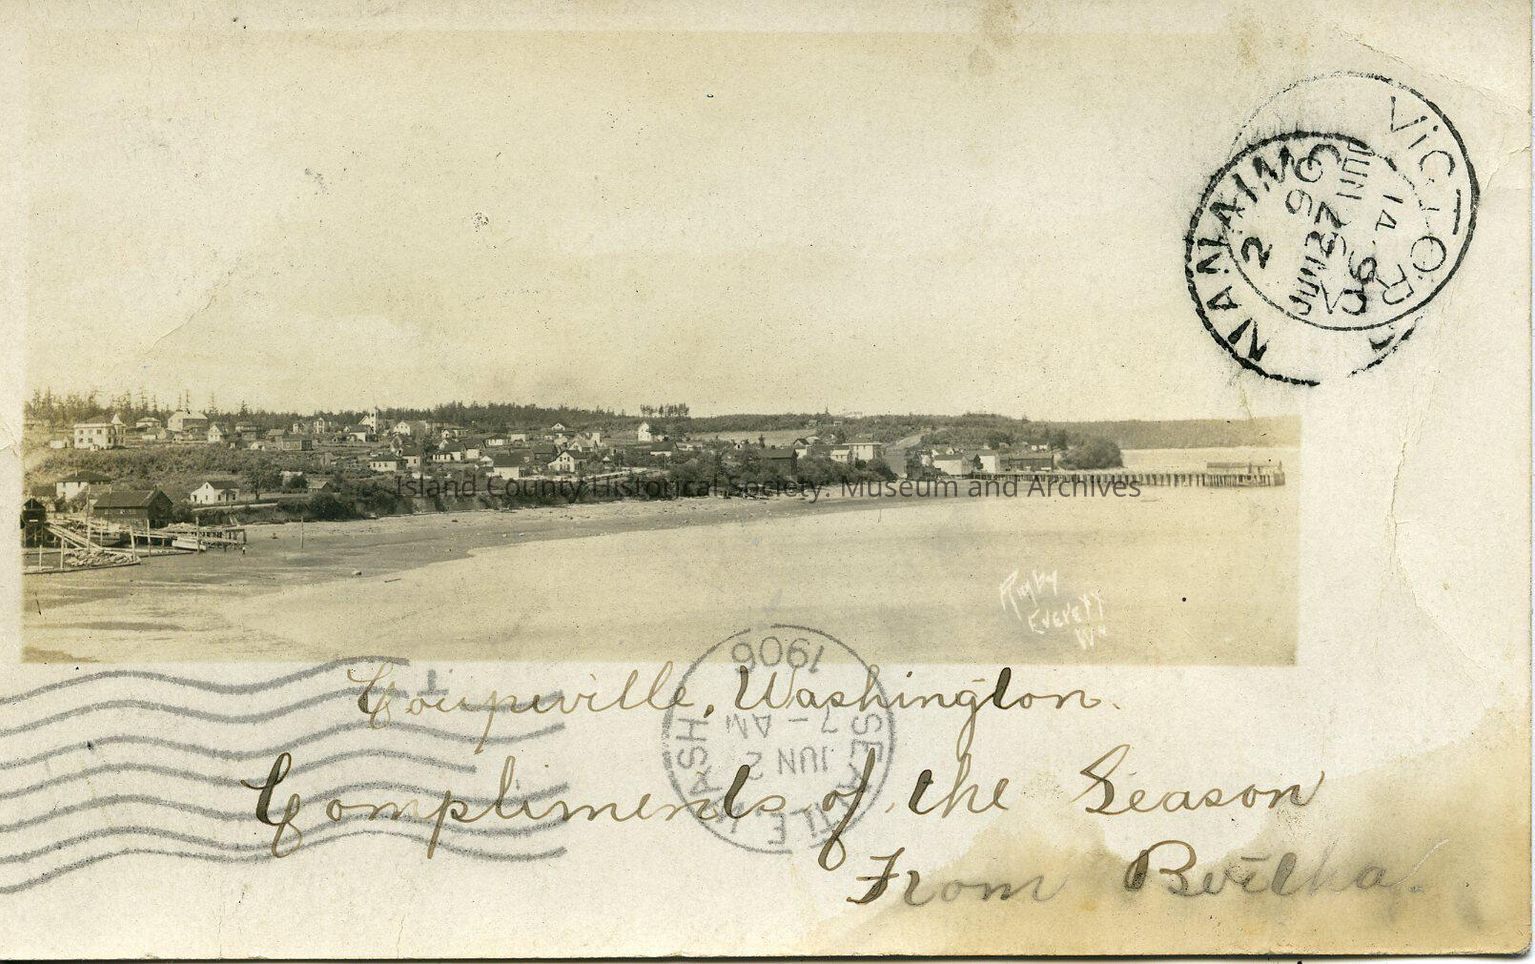 VICTOR
JUN
14
NANAIMO
2
JUN 27
06
Island County Historical Society: Museum and Archives
Rigby
Everett
Wn
SEATTLE, WASH
JUN 2
7 - AM
1906
Coupeville, Washington.
Compliments of the Season
From Bertha.